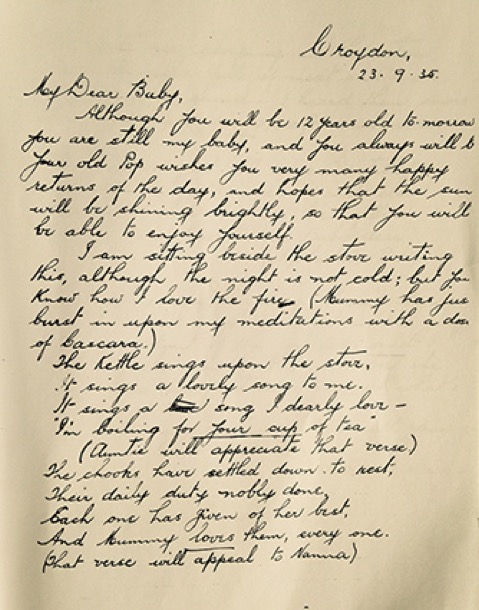 Croydon,
23. 9. 35.
My Dear Baby,
Although you will be 12 years old to-morrow
you are still my baby, and you always will b
Your old Pop wishes you very many happy
returns of the day, and hopes that the sun
will be shining brightly, so that you will
be able to enjoy yourself.
I am sitting beside the stove writing
this, although the night is not cold; but you
know how I love the fire. (Mummy has jus
burst in upon my meditations with a dose
of Cascara.)
The kettle sings upon the stove,
It sings a lovely song to me.
It sings a song I dearly love –
"I'm boiling for your cup of tea"
(Auntie will appreciate that verse)
The chooks have settled down to rest,
Their daily duty nobly done,
Each one has given of her best,
And Mummy loves them, every one.
(That verse will appeal to Nanna)